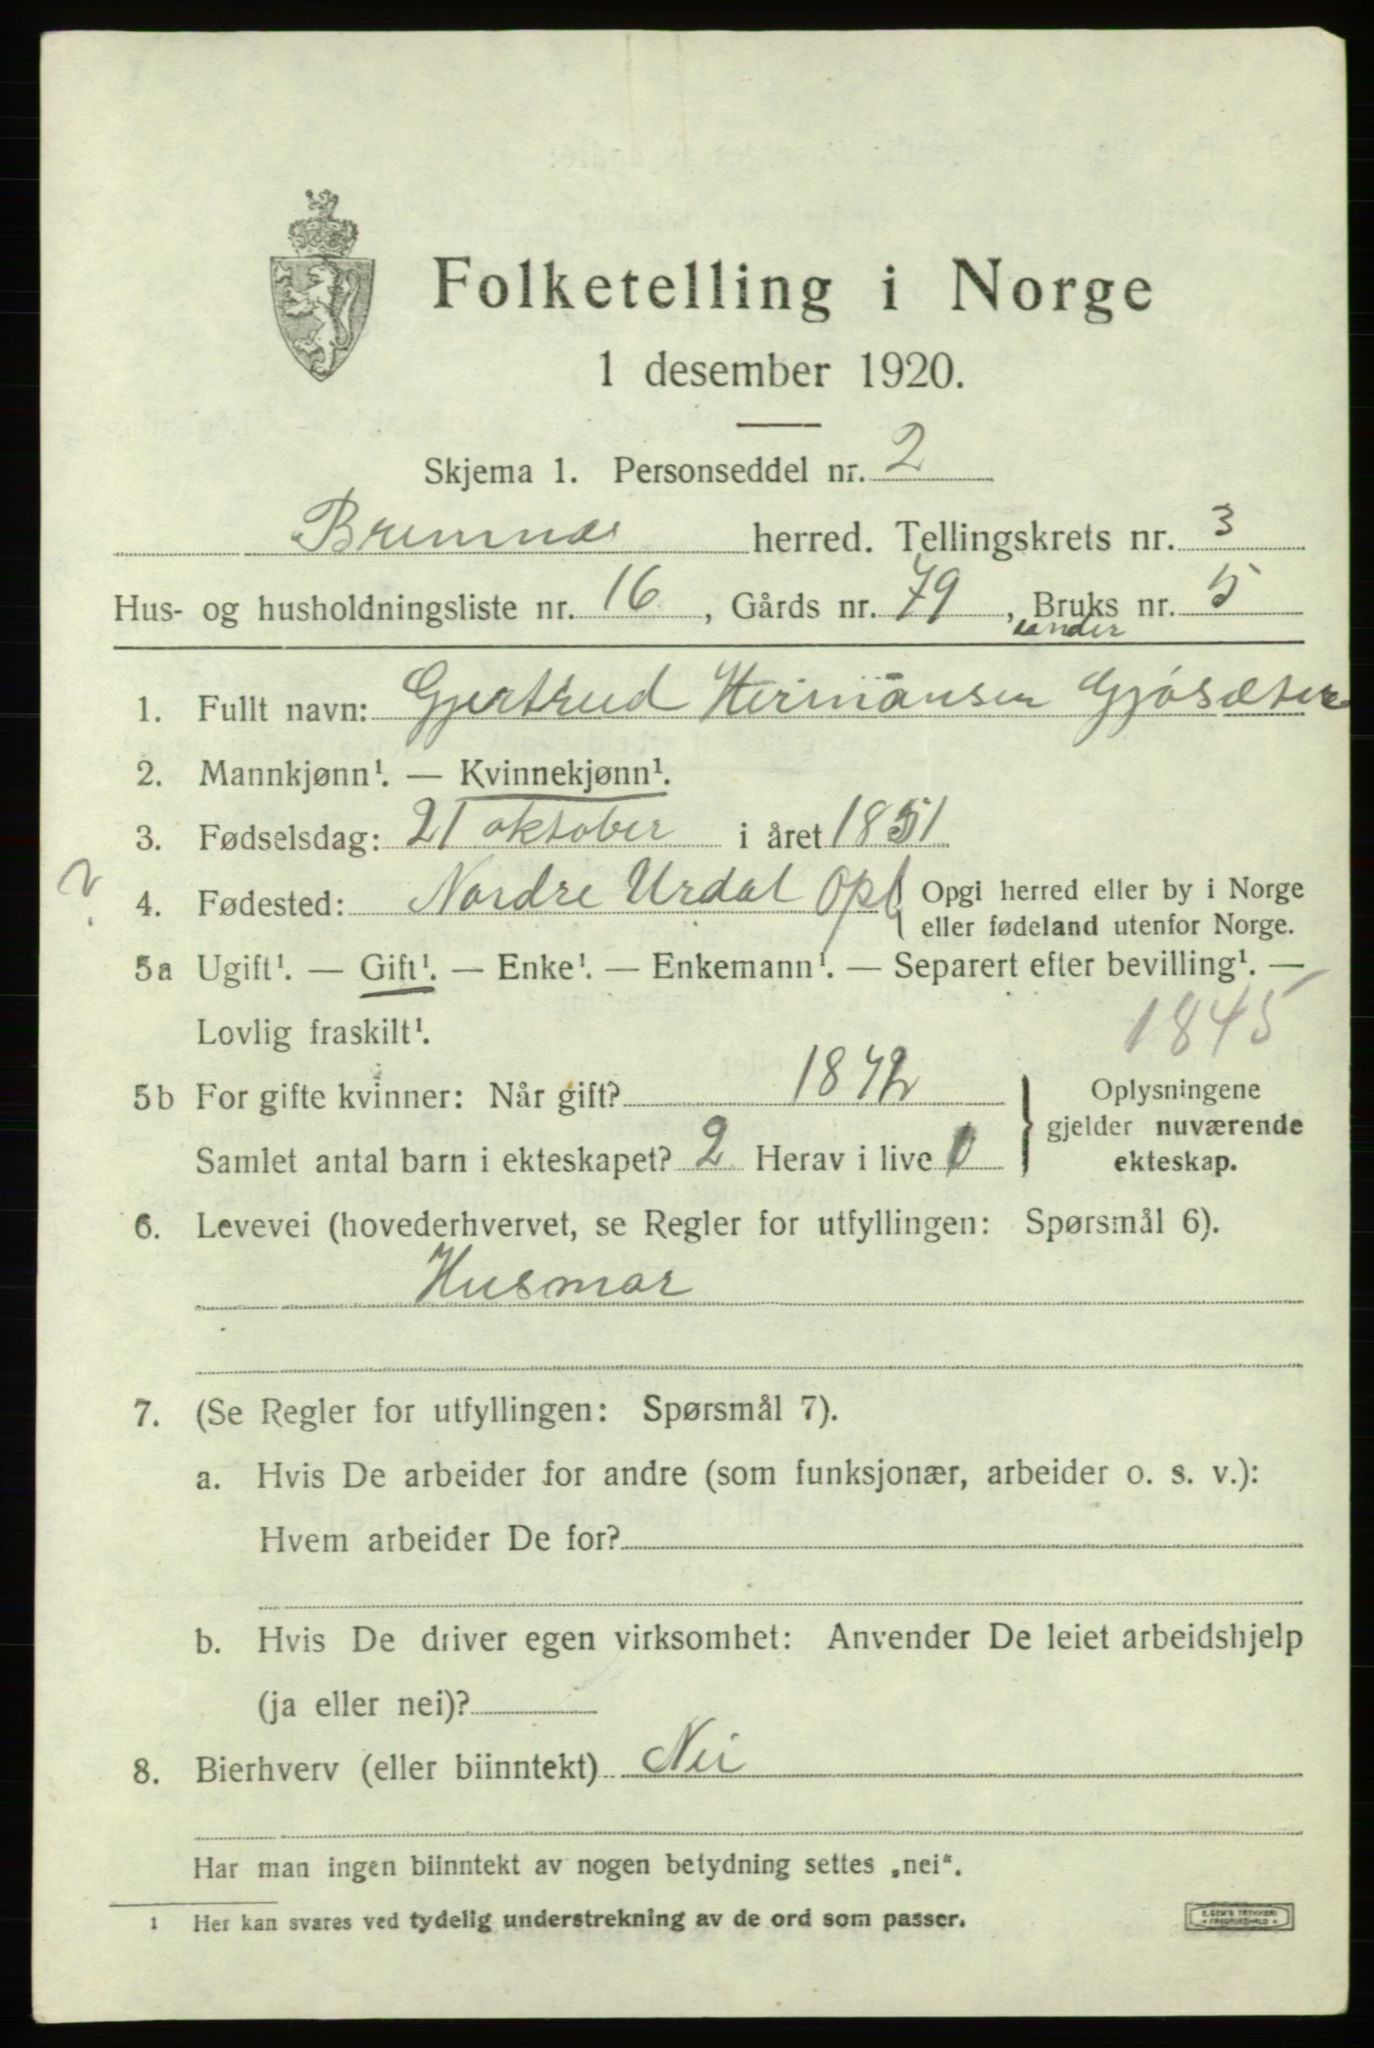 Folketelling i Norge
1 desember 1920.
Skjema 1. Personseddel nr. 2
Bremnes herred. Tellingskrets nr. 3
Hus- og husholdningsliste nr. 16, Gårds nr. 79, Bruks nr. 5
under
1. Fullt navn: Gjertrud Hermansen Gjøsæter
2. Mannkjønn¹. — Kvinnekjønn¹.
3. Fødselsdag: 21 oktober i året 1851
4. Fødested: Nordre Urdal Opl Opgi herred eller by i Norge
eller fødeland utenfor Norge.
5a Ugift¹. — Gift¹. — Enke¹. — Enkemann¹. — Separert efter bevilling¹. —
Lovlig fraskilt¹.
1845
5b For gifte kvinner: Når gift? 1872
Oplysningene
gjelder nuværende
ekteskap.
Samlet antal barn i ekteskapet? 2 Herav i live 0
6. Levevei (hovederhvervet, se Regler for utfyllingen: Spørsmål 6).
Husmor
7. (Se Regler for utfyllingen: Spørsmål 7).
a. Hvis De arbeider for andre (som funksjonær, arbeider o. s. v.):
Hvem arbeider De for?
b. Hvis De driver egen virksomhet: Anvender De leiet arbeidshjelp
(ja eller nei)?
8. Bierhverv (eller biinntekt) Nei
Har man ingen biinntekt av nogen betydning settes „nei“.
1 Her kan svares ved tydelig understrekning av de ord som passer.